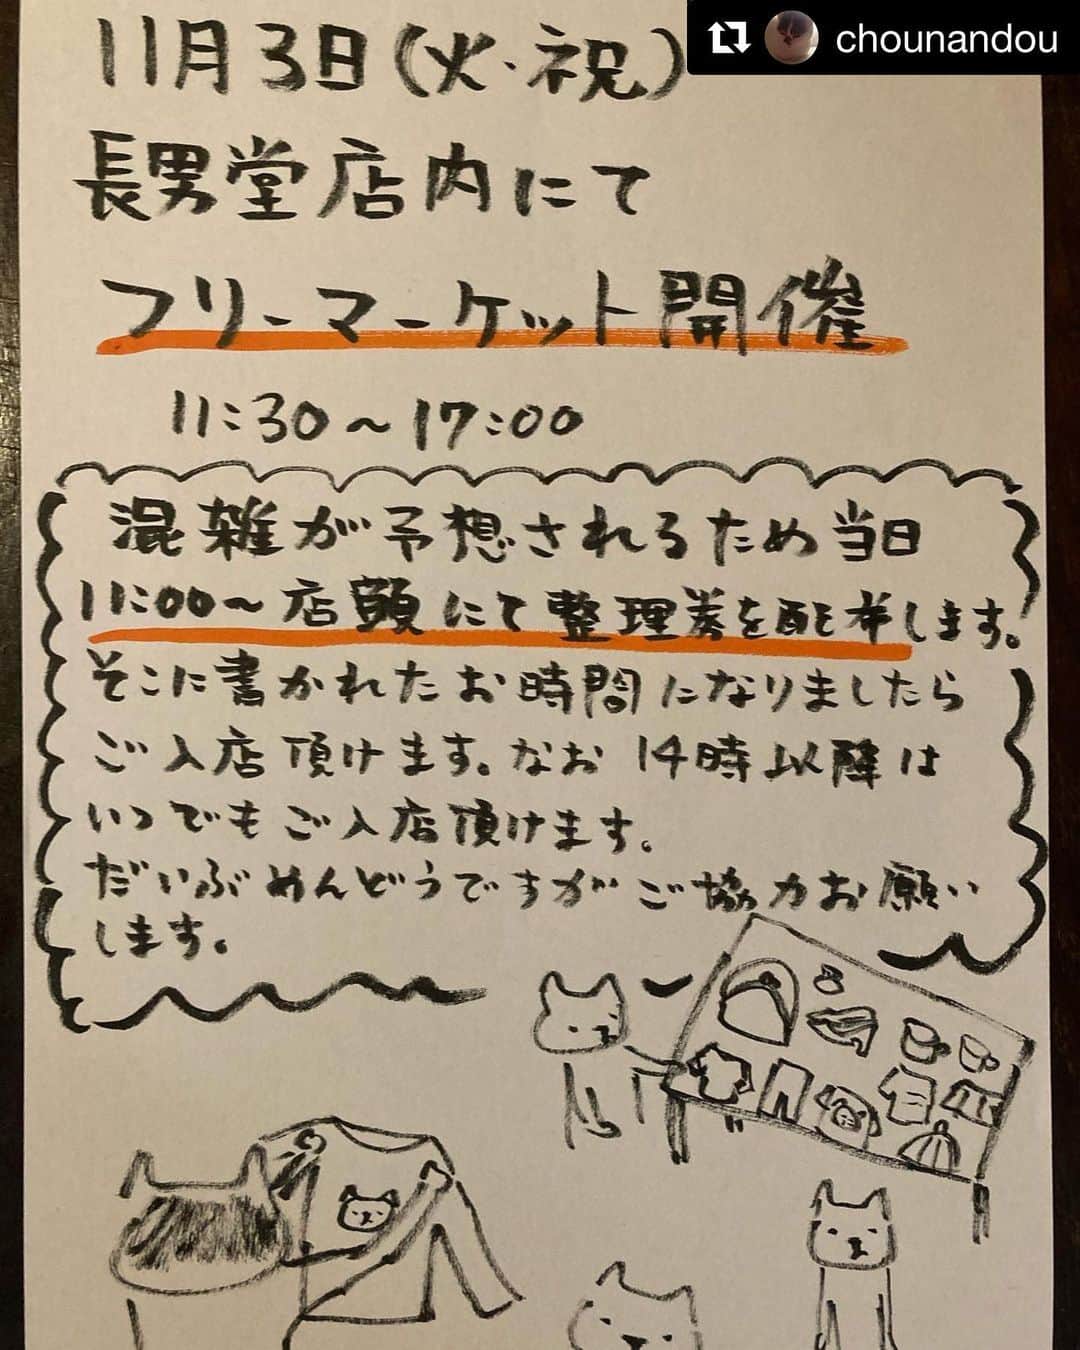 chounandou
11月3日(火・祝)
長男堂店内にて
フリーマーケット開催
11:30～17:00
混雑が予想されるため当日
11:00～店頭にて整理券を配布します。
そこに書かれたお時間になりましたら
ご入店頂けます。なお14時以降は
いつでもご入店頂けます。
だいぶめんどうですがご協力お願い
します。